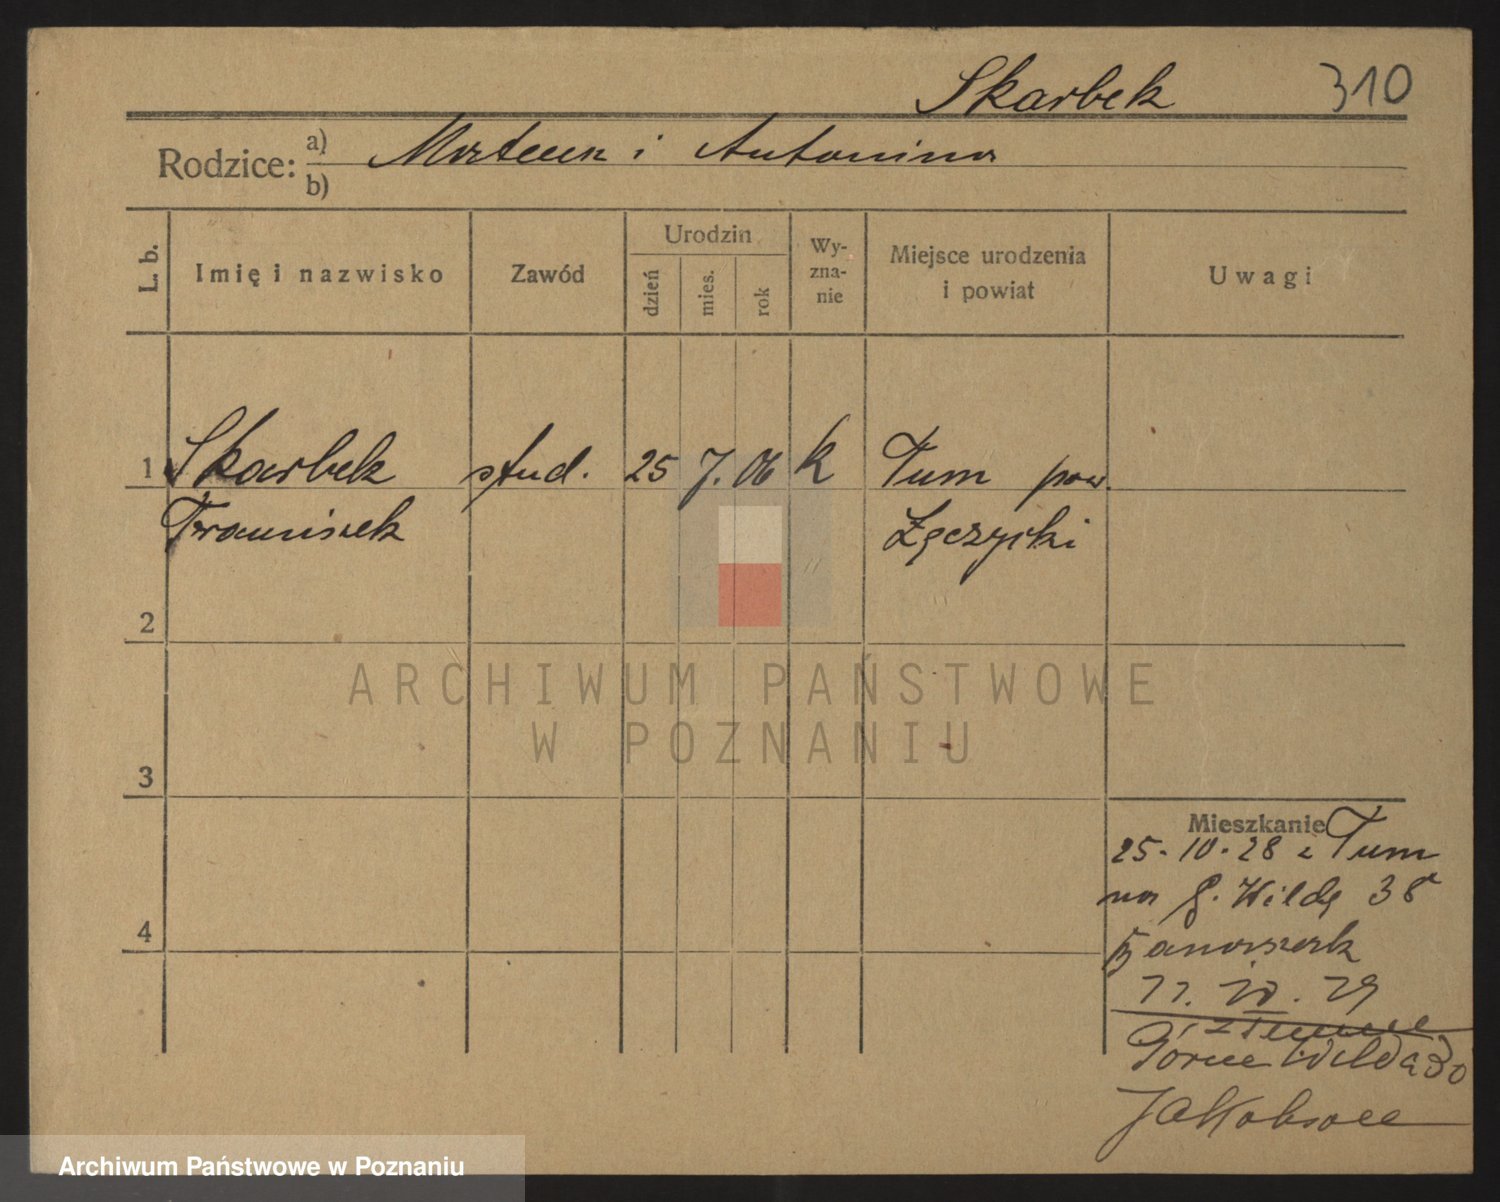 Skarbek 310
Rodzice: a) Marcin i Antonina
b)
L. b. Imię i nazwisko Zawód Urodzin dzień mies. rok Wy-zna-nie Miejsce urodzenia i powiat Uwagi
1 Skarbek stud. 25 7. 06 k Tum pow.
Franciszek Łęczycki
2
ARCHIWUM PAŃSTWOWE
W POZNANIU
3
Mieszkanie
25-10-28 z Tum
na G. Wildę 38
Banaszak
4
11. 10. 29
Górne Wilda 30
Archiwum Państwowe w Poznaniu